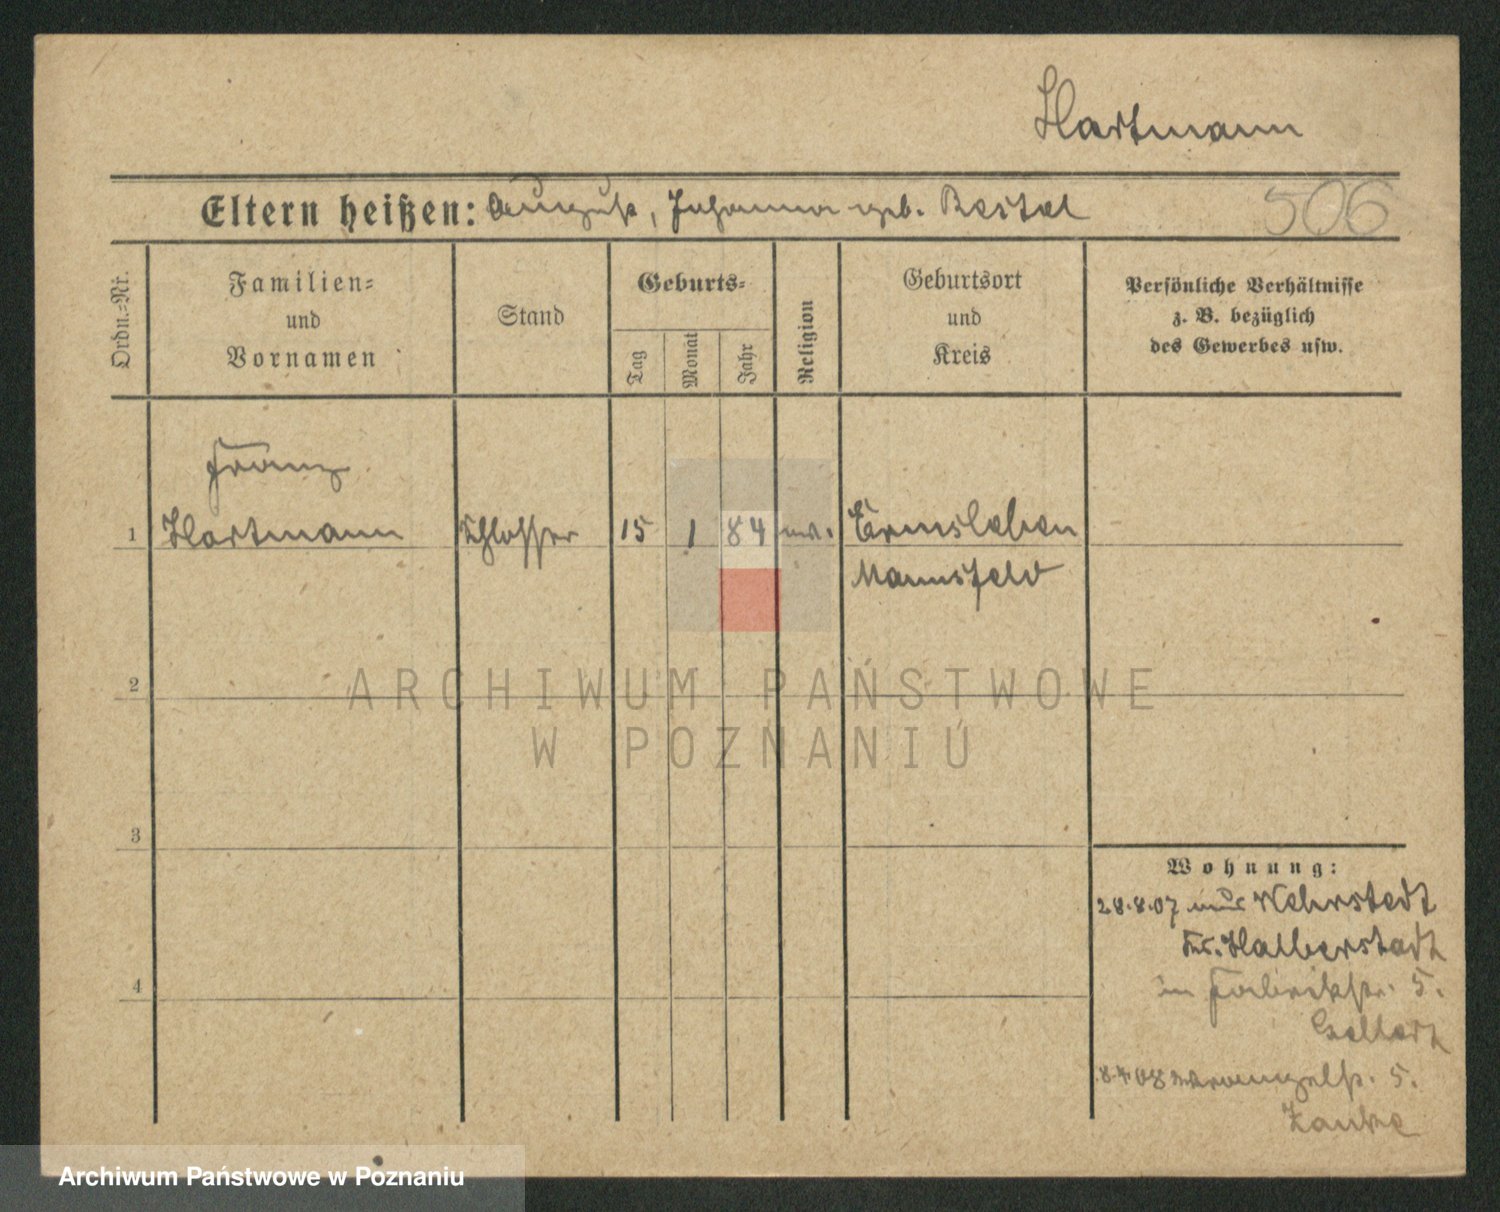 Hartmann
Eltern heißen: August, Johanna geb. Bestel
506
Ordn.-Nr.
Familien-
und
Vornamen
Stand
Geburts-
Tag
Monat
Jahr
Religion
Geburtsort
und
Kreis
Persönliche Verhältnisse
z. B. bezüglich
des Gewerbes usw.
Franz
1 Hartmann Schlosser 15 1 84 Ermsleben
Mannsfeld
2
ARCHIWUM PAŃSTWOWE
W POZNANIU
3
Wohnung:
28.8.07 aus Wehrstedt
Kr. Halberstadt
in Fabrikstr. 5.
Gellert
8.4.08 Wrangelstr. 5.
Zanke
4
Archiwum Państwowe w Poznaniu